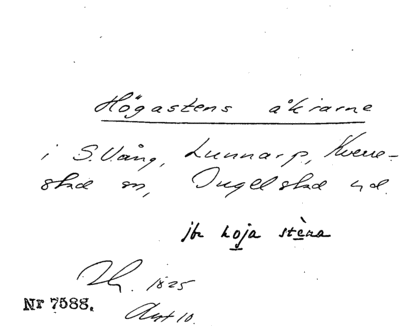 Högastens åkrarne
i S. Vång, Lunnarp, Kverre-
stad sn, Ingelstad hd.
jfr hoja stena
1825
Nr 7588.
Akt 10.